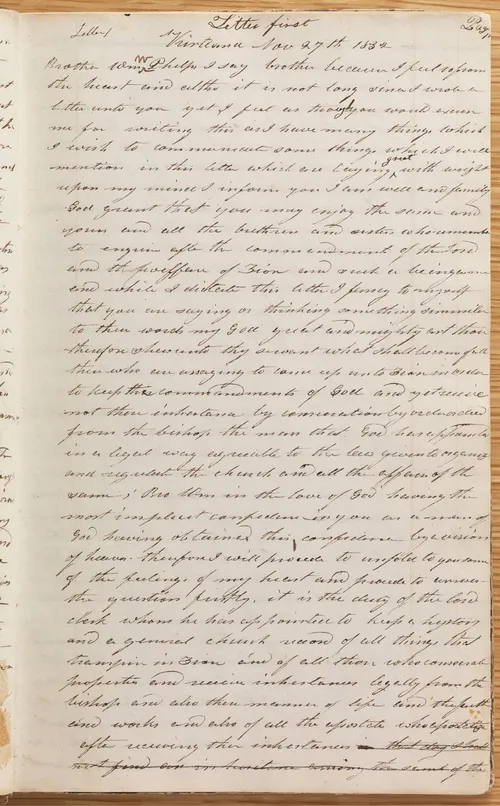 Letter first
Letter 1 Kirtland Nov 27th 1832 Page
Brother Wm W Phelps I say brother because I feel so from
the heart and altho it is not long since I wrote a
letter unto you yet I feel as though you would excuse
me for writing this as I have many things which
I wish to communicate some things which I will
mention in this letter which are laying great with weight
upon my mind I inform you I am well and family
God grant that you may enjoy the same and
yours and all the brethren and sisters who remember
to enquire after the commandments of the Lord
and the wellfare of Zion and such a being as me
and while I dictate this letter I fancy to myself
that you are saying or thinking something simmiler
to these words my God great and mighty art thou
therefore shew unto thy servant what shall become of all
those who are assaying to come up unto Zion in order
to keep the commandments of God and yet receive
not there inheritance by consecration by order or deed
from the bishop the man that God has appointed
in a legal way agreeable to the law given to organize
and regulate the church and all the affairs of the
same ; Bro Wm in the love of God having the
most implicit confidence in you as a man of
God having obtained this confidence by a vision
of heaven therefore I will procede to unfold to you some
of the feelings of my heart and procede to answer
the question firstly, it is the duty of the lord
clerk whom he has appointed to keep a hystory
and a general church record of all things that
transpire in Zion and of all those who consecrate
properties and receive inheritances legally from the
bishop and also there manner of life and the faith
and works and also of all the apostates who apostatize
after receiving ther inheritances that
not find an in the sumt of the